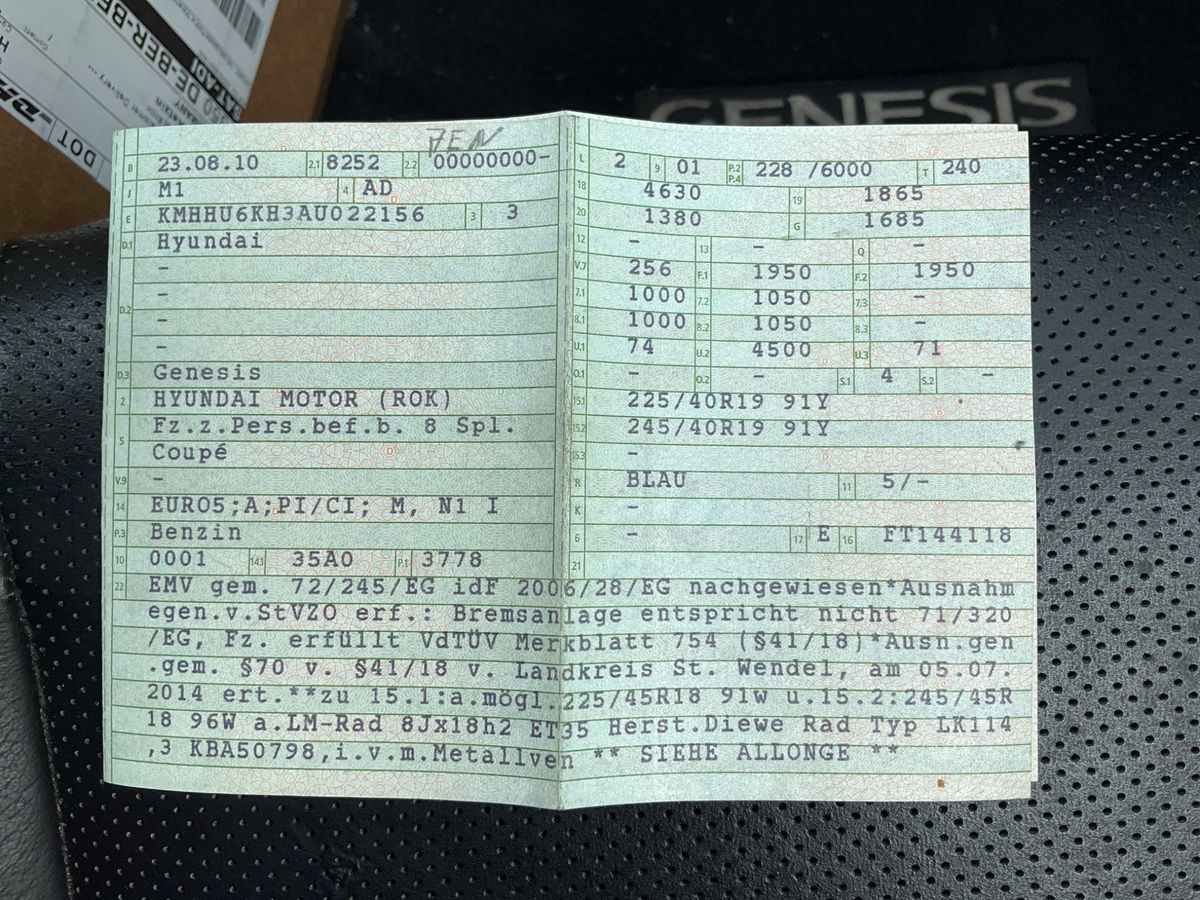 GENESIS
DE-BER-BE
7EN
B 23.08.10 2.1 8252 2.2 00000000-
J M1 4 AD
E KMHHU6KH3AU022156 3 3
D.1 Hyundai
-
D.2 -
-
-
D.3 Genesis
2 HYUNDAI MOTOR (ROK)
5 Fz.z.Pers.bef.b. 8 Spl.
Coupé
V.9 -
14 EURO5;A;PI/CI; M, N1 I
P.3 Benzin
10 0001 14.1 35A0 P.1 3778
L 2 9 01 P.2 P.4 228 /6000 T 240
18 4630 19 1865
20 1380 G 1685
12 - 13 - Q -
V.7 256 F.1 1950 F.2 1950
7.1 1000 7.2 1050 7.3 -
8.1 1000 8.2 1050 8.3 -
U.1 74 U.2 4500 U.3 71
O.1 - O.2 - S.1 4 S.2 -
15.1 225/40R19 91Y
15.2 245/40R19 91Y
15.3 -
R BLAU 11 5/-
K -
6 - 17 E 16 FT144118
21
22 EMV gem. 72/245/EG idF 2006/28/EG nachgewiesen*Ausnahm
egen.v.StVZO erf.: Bremsanlage entspricht nicht 71/320
/EG, Fz. erfüllt VdTÜV Merkblatt 754 (§41/18)*Ausn.gen
.gem. §70 v. §41/18 v. Landkreis St. Wendel, am 05.07.
2014 ert.**zu 15.1:a.mögl.225/45R18 91w u.15.2:245/45R
18 96W a.LM-Rad 8Jx18h2 ET35 Herst.Diewe Rad Typ LK114
,3 KBA50798,i.v.m.Metallven ** SIEHE ALLONGE **